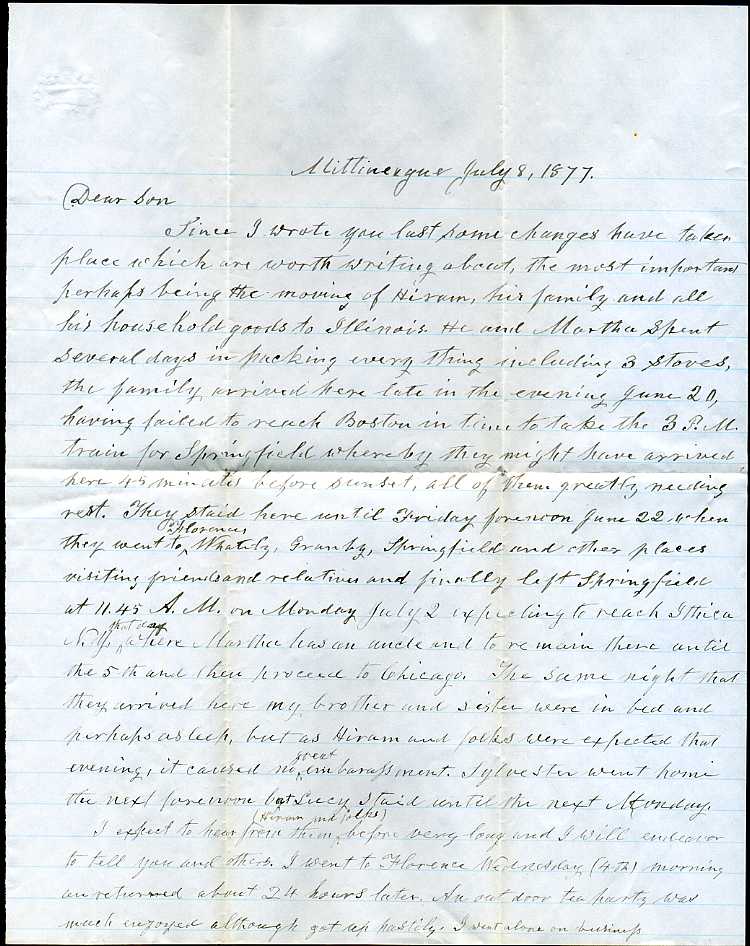 Mittineague July 8, 1877.
Dear Son
Since I wrote you last some changes have taken
place which are worth writing about, the most important
perhaps being the moving of Hiram, his family and all
his household goods to Illinois. He and Martha spent
several days in packing every thing including 3 stoves,
the family arrived here late in the evening June 20,
having failed to reach Boston in time to take the 3 P.M.
train for Springfield whereby they might have arrived
here 45 minutes before sunset, all of them greatly needing
rest. They staid here until Friday forenoon June 22 when
Florence,
they went to Whately, Granby, Springfield and other places
visiting friends and relatives and finally left Springfield
at 11.45 A.M. on Monday July 2 expecting to reach Ithica
that day
N.Y. where Martha has an uncle and to remain there until
the 5th and then proceed to Chicago. The same night that
they arrived here my brother and sister were in bed and
perhaps asleep, but as Hiram and folks were expected that
great
evening, it caused no embarassment. Sylvester went home
the next forenoon but Lucy staid until the next Monday.
(Hiram and folks)
I expect to hear from them before very long and I will endeavor
to tell you and others. I went to Florence Wednesday (4th) morning
an returned about 24 hours later. An out door tea party was
much enjoyed although got up hastily. I went alone on business